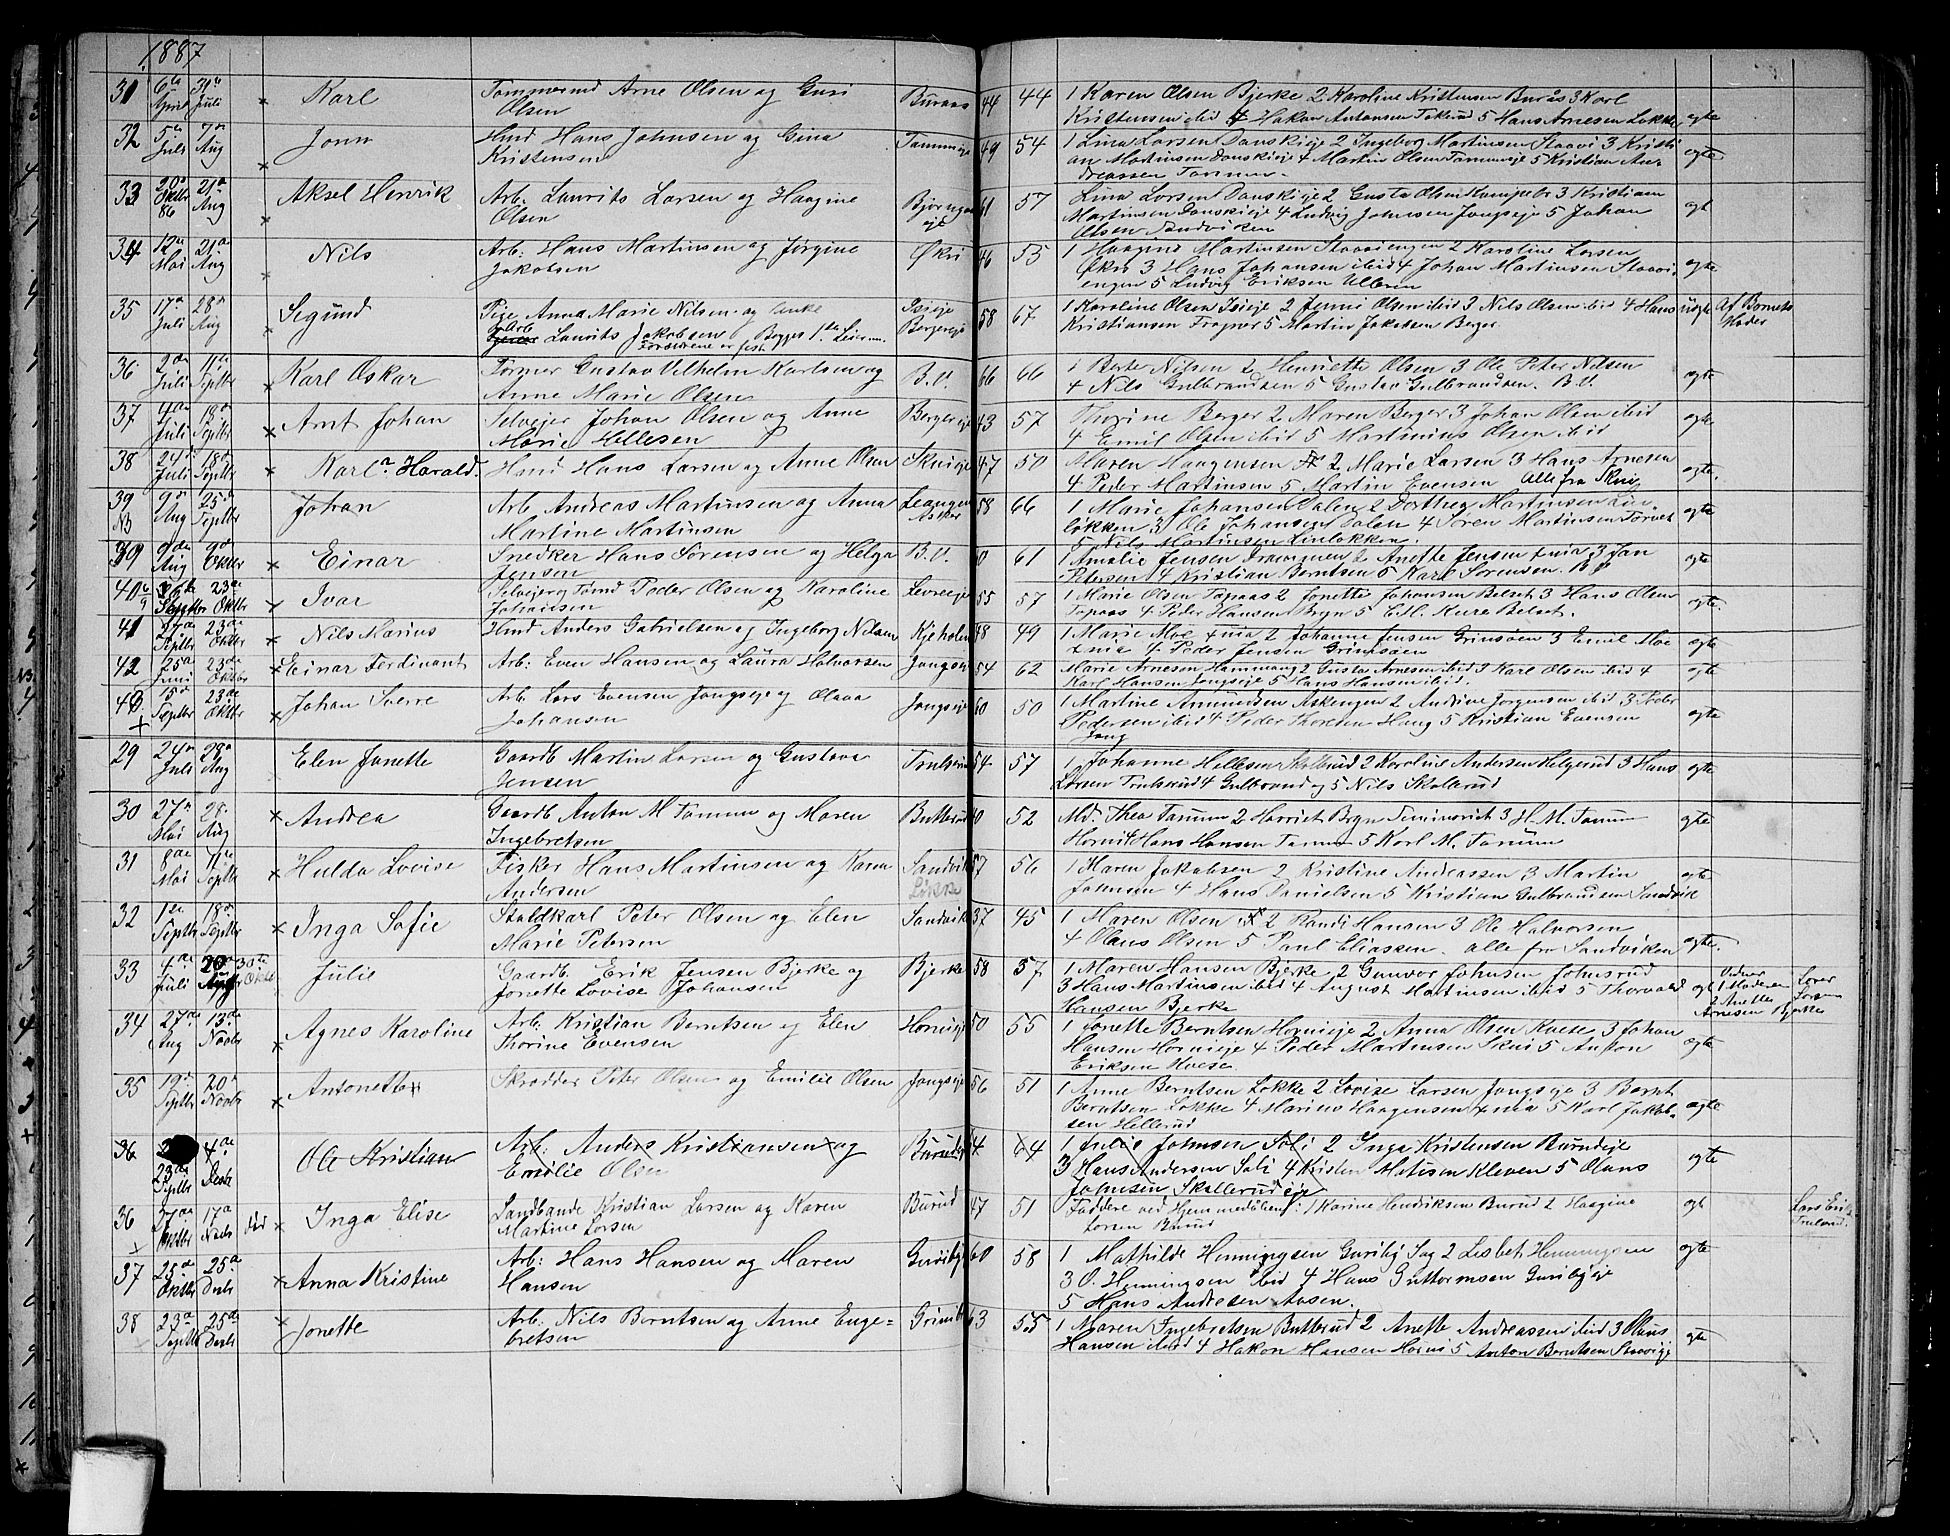 1887
31 6te April 31te Juli × Karl Tømmermd Arne Olsen og Guri Olsen Buraas 44 44 1 Karen Olsen Bjerke 2 Karoline Kristensen Burås 3 Karl
Kristensen ibid 4 Hakon Antonsen 5 Hans Arnesen Løkke ægte
32 5te Juli 7de Aug × Jonn Hmd Hans Johnsen og Gina Kristensen 49 54 1 Lina Larsen Danskeje 2 Ingeborg Martinsen Staavi 3 Kristi
an Martinsen Danskeje 4 Martin Olsen 5 Kristian An
dreassen Tanum. ægte
33 20de Oktbr 86 21de Aug × Aksel Henrik Arb. Laurits Larsen og Haagine Olsen 61 57 Lina Larsen Danskeje 2 Gusta Olsen 3 Kristian
Martinsen Danskeje 4 Ludvig Johnsen Jongseje 5 Johan
Olsen Sandviken ægt
34 12te Mai 21de Aug × Nils Arb: Hans Martinsen og Jørgine Jakobsen Økri 46 53 1 Haagine Martinsen Staaviengen 2 Karoline Larsen
Økri 3 Hans Johansen ibid 4 Johan Martinsen Staavi
engen 5 Ludvig Eriksen Ulleren ægte
35 17de Juli 28de Aug Segund Pige Anna Marie Nilsen og Enke
Arb Laurits Jakobsen Begges 1ste Leierm.
Forældrene er Isieje Bergereje 58 67 1 Karoline Olsen Isieje 2 Jenni Olsen ibid 3 Nils Olsen ibid 4 Hans
Kristiansen Frogner 5 Martin Jakobsen Berger uægte Af Barnets Moder
36 2den Juli 11te Septbr × Karl Oskar Former Gustav Vilhelm Karlsen og
Anne Marie Olsen B.V. 66 66 1 Berte Nilsen 2 Henriette Olsen 3 Ole Peter Nilsen
4 Nils Gulbrandsen 5 Gustav Gulbrandsen. B.V. ægte
37 4de Juli 18de Septbr × Arnt Johan Selvejer Johan Olsen og Anne
Marie Hellesen Bergereje 43 57 Thorine Berger 2 Maren Berger 3 Johan Olsen ibid
4 Emil Olsen ibid 5 Martinius Olsen ibid ægte
38 24de Juli 18de Septbr × Karl Harald. Hmd Hans Larsen og Anne Olsen Skuieje 47 50 Maren Haagensen 2 Marie Larsen 3 Hans Arnesen
4 Peder Martinsen 5 Martin Evensen Alle fra Skui ægte.
39 NB 9de Aug 25de Septbr Johan Arb Andreas Martinsen og Anna
Martine Martinsen Leangen Asker 58 66 1 Marie Johansen Dalen 2 Dorthea Martinsen Lin
løkken 3 Ole Johansen Dalen 4 Søren Martinsen Torvet
5 Nils Martinsen Linløkken. ægte
39 9de Aug 9de Oktbr × Einar Snedker Hans Sørensen og Helga
Jensen B.V. 61 1 Amalie Jensen Drammen 2 Anette Jensen Xnia 3 Jan
Petersen 4 Kristian Berntsen 5 Karl Sørensen. B.V. ægte
40 Septbr 23de Oktbr Ivar Selvejer Tømd Peder Olsen og Karoline
Johansen Levreeje 55 57 1 Marie Olsen Tapaas 2 Jonette Johansen Belset 3 Hans Olsen
Tapaas 4 Peder Hansen Bryn 5 Edl. Kure Belset. ægte.
41 Septbr 23de Oktbr × Nils Marius Hmd Anders Gabrielsen og Ingeborg Nilsen Kjeholm 48 49 1 Marie Moe Xnia 2 Johanne Jensen Grimsøen 3 Emil Moe
Xnia 4 Peder Jensen Grimsøen ægte
42 25de Juni 23de Oktbr × Einar Ferdinant Arb: Even Hansen og Laura Halvorsen Jongseje 54 62 Marie Arnesen Hammang 2 Gusta Arnesen ibid 3 Karl Olsen ibid 4
Karl Hansen Jongseje 5 Hans Hansen ibid. ægte
43 + 15de Septbr 23de Oktbr × Johan Sverre Arb. Lars Evensen Jongseje og Olava
Johansen Jongseje 60 50 1 Martine Amundsen Askengen 2 Andrine Jørgensen ibid 3 Peder
Pedersen ibid 4 Peder Thoresen Haug 5 Kristian Evensen
Jong ægte
29 24de Juli 28de Aug Elen Janette Gaardb Martin Larsen og Gustava
Jensen 54 57 1 Johanne Hellesen Skollerud 2 Karoline Andersen Helgerud 3 Hans
Larsen Trulserud 4 Gulbrand og 5 Nils Skollerud ægte
30 27de Mai 28. Aug × Andrea Gaardb Anton M Tanum og Maren
Ingebretsen Butterud 40 52 Md. Thea Tanum 2 Harriet Bryn Seminarist 3 H. M. Tanum
Hornil Hans Hansen Tanum 5 Karl M. Tanum ægte
31 8de Mai 11te Septbr × Hulda Lovise Fisker Hans Martinsen og Karen
Andersen Sandvik Løkke 57 56 1 Karen Jakobsen 2 Kristine Andreassen 3 Martin
Johnsen 4 Hans Danielsen 5 Kristian Gulbrandsen Sandvik ægte
32 1ste Septbr 18de Septbr × Inga Sofie Staldkarl Peter Olsen og Elen
Marie Petersen Sandvik 37 45 1 Maren Olsen 2 Randi Hansen 3 Ole Halvorsen
4 Olaus Olsen 5 Paul Eliassen. alle fra Sandviken ægte.
33 4de Juli Julie Gaardb. Erik Jensen Bjerke og
Jonette Lovise Johansen Bjerke 58 37 1 Maren Hansen Bjerke 2 Gunvor Johnsen Johnsrud
3 Hans Martinsen ibid 4 August Martinsen ibid 5 Thorvald
Hansen Bjerke ægt Vidner 1 Moderen 2 Anette Arnesen Bjerke
34 27de Aug 13de Novbr × Agnes Karoline Arb. Kristian Berntsen og Elen
Thorine Evensen Hornieje 50 55 1 Jonette Berntsen Hornieje 2 Anna Olsen Kvese 3 Johan
Hansen Hornieje 4 Peder Martinsen Skui 5 Anton
Eriksen Hvese ægte
35 19de Septbr 20de Novbr × Antonette Skrædder Peter Olsen og Emilie Olsen Jongseje 56 51 1 Anne Berntsen Løkke 2 Lovise Larsen Jongseje 3 Bernt
Berntsen Løkke 4 Marius Haagensen Xnia 5 Karl Jakob-
sen Hellerud ægte
36 23de Septbr 4de Desbr Ole Kristian Arb: Anders Kristiansen og
Emilie Olsen 64 1 Julie Johnsen Soli 2 Inga Kristensen Burudeje
3 Hans Andersen Soli 4 Kristen Matisen Kleven 5 Olaus
Johnsen Skallerudeje ægte
36 + 27de Oktbr 17de Novbr × Inga Elise Landhande Kristian Larsen og Karen
Martine Larsen Burud 47 51 Faddere ved Hjemmedåben: 1 Karine Henriksen Burud 2 Haagine
Larsen Burud ægt
37 25de Oktbr 25de Desbr × Anna Kristine Arb: Hans Hansen og Maren
Hansen 60 58 1 Mathilde Henningsen Guriby Sag 2 Lisbet Henningsen
3 O. Henningsen ibid 4 Hans Guttormsen Guribyeje
5 Hans Andresen Aasen. ægte
38 23de Septbr 25de Desbr × Jonette Arb: Nils Berntsen og Anne Enge-
bretsen 63 55 1 Maren Ingebretsen Butterud 2 Anette Andreassen ibid 3 Olaus
Hansen ibid 4 Hakon Hansen Hornis 5 Anton Berntsen Staavieje ægte